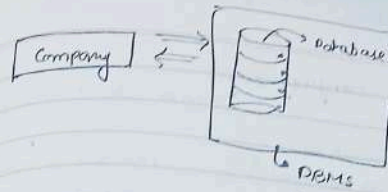 Company
Database
DBMS